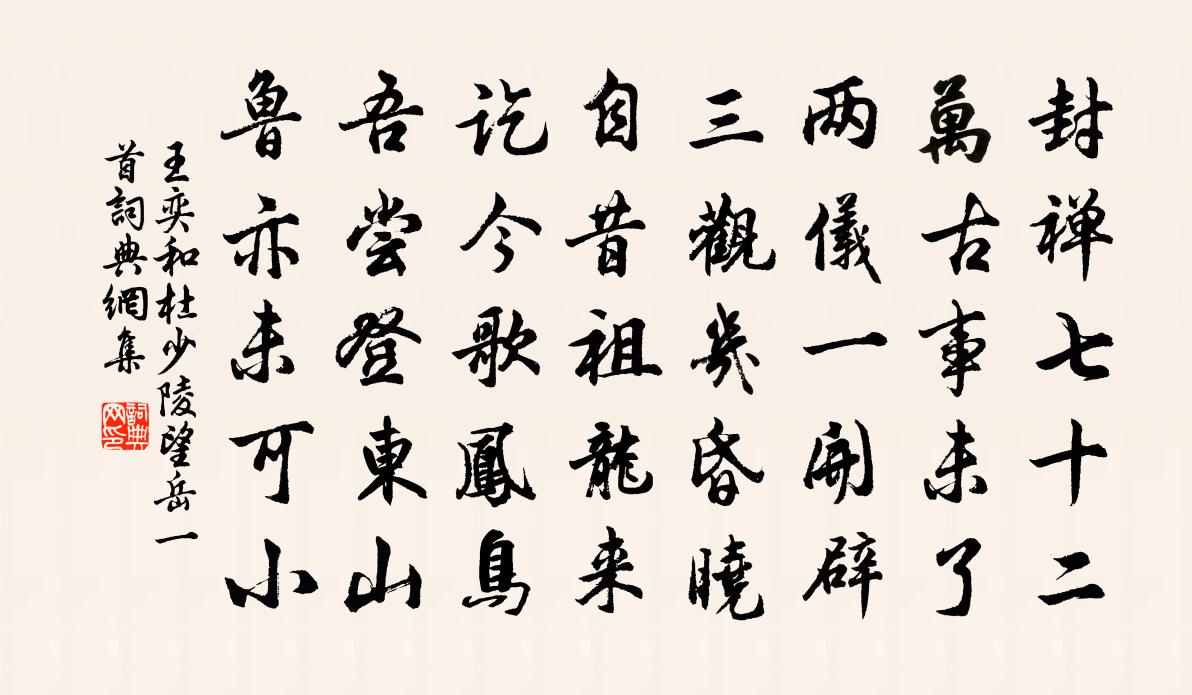 封禅七十二
萬古事未了
两儀一開辟
三觀幾昏曉
自昔祖龍来
訖今歌鳳鳥
吾尝登東山
魯亦未可小
王奕和杜少陵望岳一
首詞典網集
詞典
网印